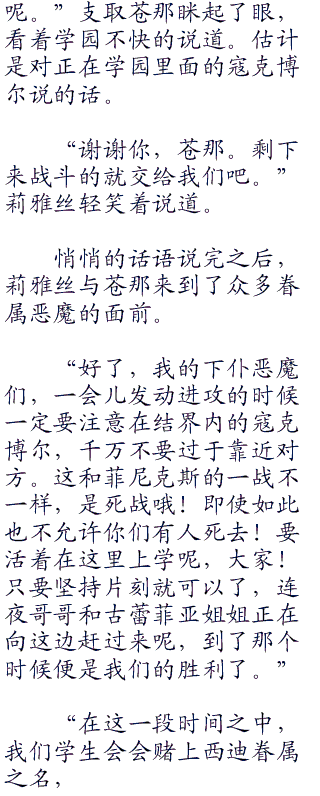 呢。”支取苍那眯起了眼，
看着学园不快的说道。估计
是对正在学园里面的寇克博
尔说的话。
“谢谢你，苍那。剩下
来战斗的就交给我们吧。”
莉雅丝轻笑着说道。
悄悄的话语说完之后，
莉雅丝与苍那来到了众多眷
属恶魔的面前。
“好了，我的下仆恶魔
们，一会儿发动进攻的时候
一定要注意在结界内的寇克
博尔，千万不要过于靠近对
方。这和菲尼克斯的一战不
一样，是死战哦！即使如此
也不允许你们有人死去！要
活着在这里上学呢，大家！
只要坚持片刻就可以了，连
夜哥哥和古蕾菲亚姐姐正在
向这边赶过来呢，到了那个
时候便是我们的胜利了。”
“在这一段时间之中，
我们学生会会赌上西迪眷属
之名，